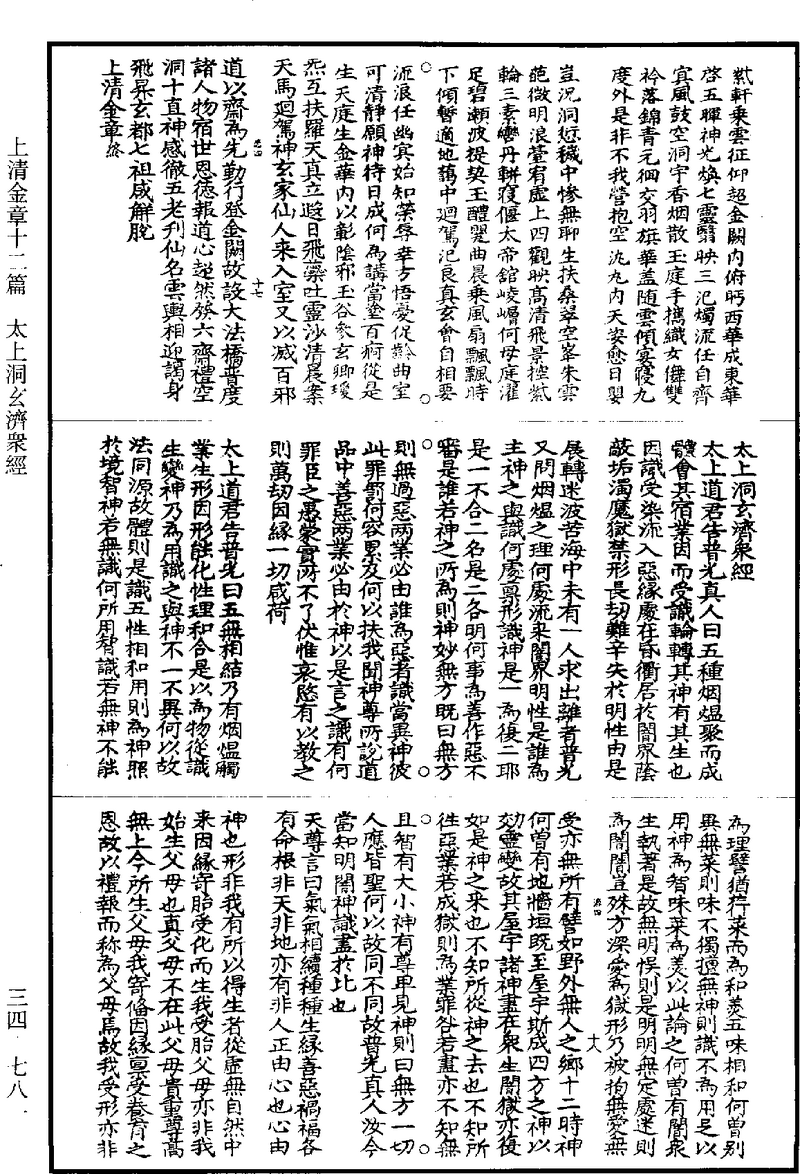 紫軒乘雲征仰超金闕內俯眄西華成東華
啓五暉神光煥七靈翳映三氾燭流任自齊
冥風鼓空洞宇香烟散玉庭手攜織女儛雙
衿落錦青元佪交羽旗華蓋隨雲傾宴寢九
度外是非不我營抱空沈九內天姿愈日嬰
豈況洞近穢中慘無聊生扶桑翠空峯朱雲
葩微明浪臺宥虛上四觀映高清飛景控紫
輪三素巒丹軿寢偃太帝舘崚嵋何母庭濯
足碧瀨波提契玉醴翼曲晨乘風扇飄飄時
下傾暫適地藹中迴駕汜良真玄會自相要
流浪任幽冥始知榮辱幸方悟憂促齡曲室
可清靜願神待日成何為講當塗百痾從是
生天庭生金華內以彰陰邪玉谷參玄卿瓊
炁互扶羅天真立遊日飛藥吐靈沙清晨案
天馬迴駕神玄家仙人来入室又以滅百邪
道以齋為先勤行登金闕故設大法橋普度
諸人物宿世恩德報道心超然發六齋禮空
洞十直神感徹五老刋仙名雲輿相迎謁身
飛昇玄都七祖咸觧脫
上清金章終
十七
太上洞玄濟衆經
太上道君告普光真人曰五種烟煴聚而成
體會其宿業因而受識輪轉其神有其生也
因識受染流入惡緣處在昏衢居於闇界蔭
蔽垢濁魔獄禁形長劫難辛失於明性由是
展轉迷波苦海中未有一人求出離者普光
又問烟煴之理何處流来闇界明性是誰為
主神之與識何處稟形識神是一為復二耶
是一不合二名是二各明何事為善作惡不
審是誰若神之所為則神妙無方既曰無方
則無過惡兩業必由誰為惡者識當異神彼
此罪罰何容累及何以扶我聞神尊所說道
品中善惡兩業必由於神以是言之識有何
罪臣之愚蒙實所不了伏惟哀愍有以教之
則萬劫因緣一切咸荷
太上道君告普光曰五無相結乃有烟煴觸
業生形因形能化性理和合是以為物從識
生變神乃為用識之與神不一不異何以故
法同源故體則是識五性相和用則為神照
於境智神若無識何所用智識若無神不能
為理譬猶䔖菜而為和羮五味相和何曾别
異無菜則味不獨擅無神則識不為用是以
用神為智味菜為羮以此論之何曾有闇衆
生執著是故無明悮則是明明無定處迷則
為闇闇豈殊方深愛為獄形乃被拘無愛無
十八
受亦無所有譬如野外無人之鄉十二時神
何曾有地牆垣既至屋宇斯成四方之神以
効靈變故其屋宇諸神盡在衆生闇獄亦復
如是神之来也不知所從神之去也不知所
徃惡業若成獄則為業罪咎若盡亦不知無
且智有大小神有尊卑見神則曰無方一切
人應皆聖何以故同不同故普光真人汝今
當知明闇神識盡於此也
天尊言曰氣氣相續種種生緣善惡禍福各
有命根非天非地亦有非人正由心也心由
神也形非我有所以得生者從虛無自然中
来因緣寄胎受化而生我受胎父母亦非我
始生父母也真父母不在此父母貴重尊高
無上今所生父母我寄備因緣稟受養育之
恩故以禮報而稱為父母焉故我受形亦非
上清金章十二篇　太上洞玄濟衆經
三四·七八